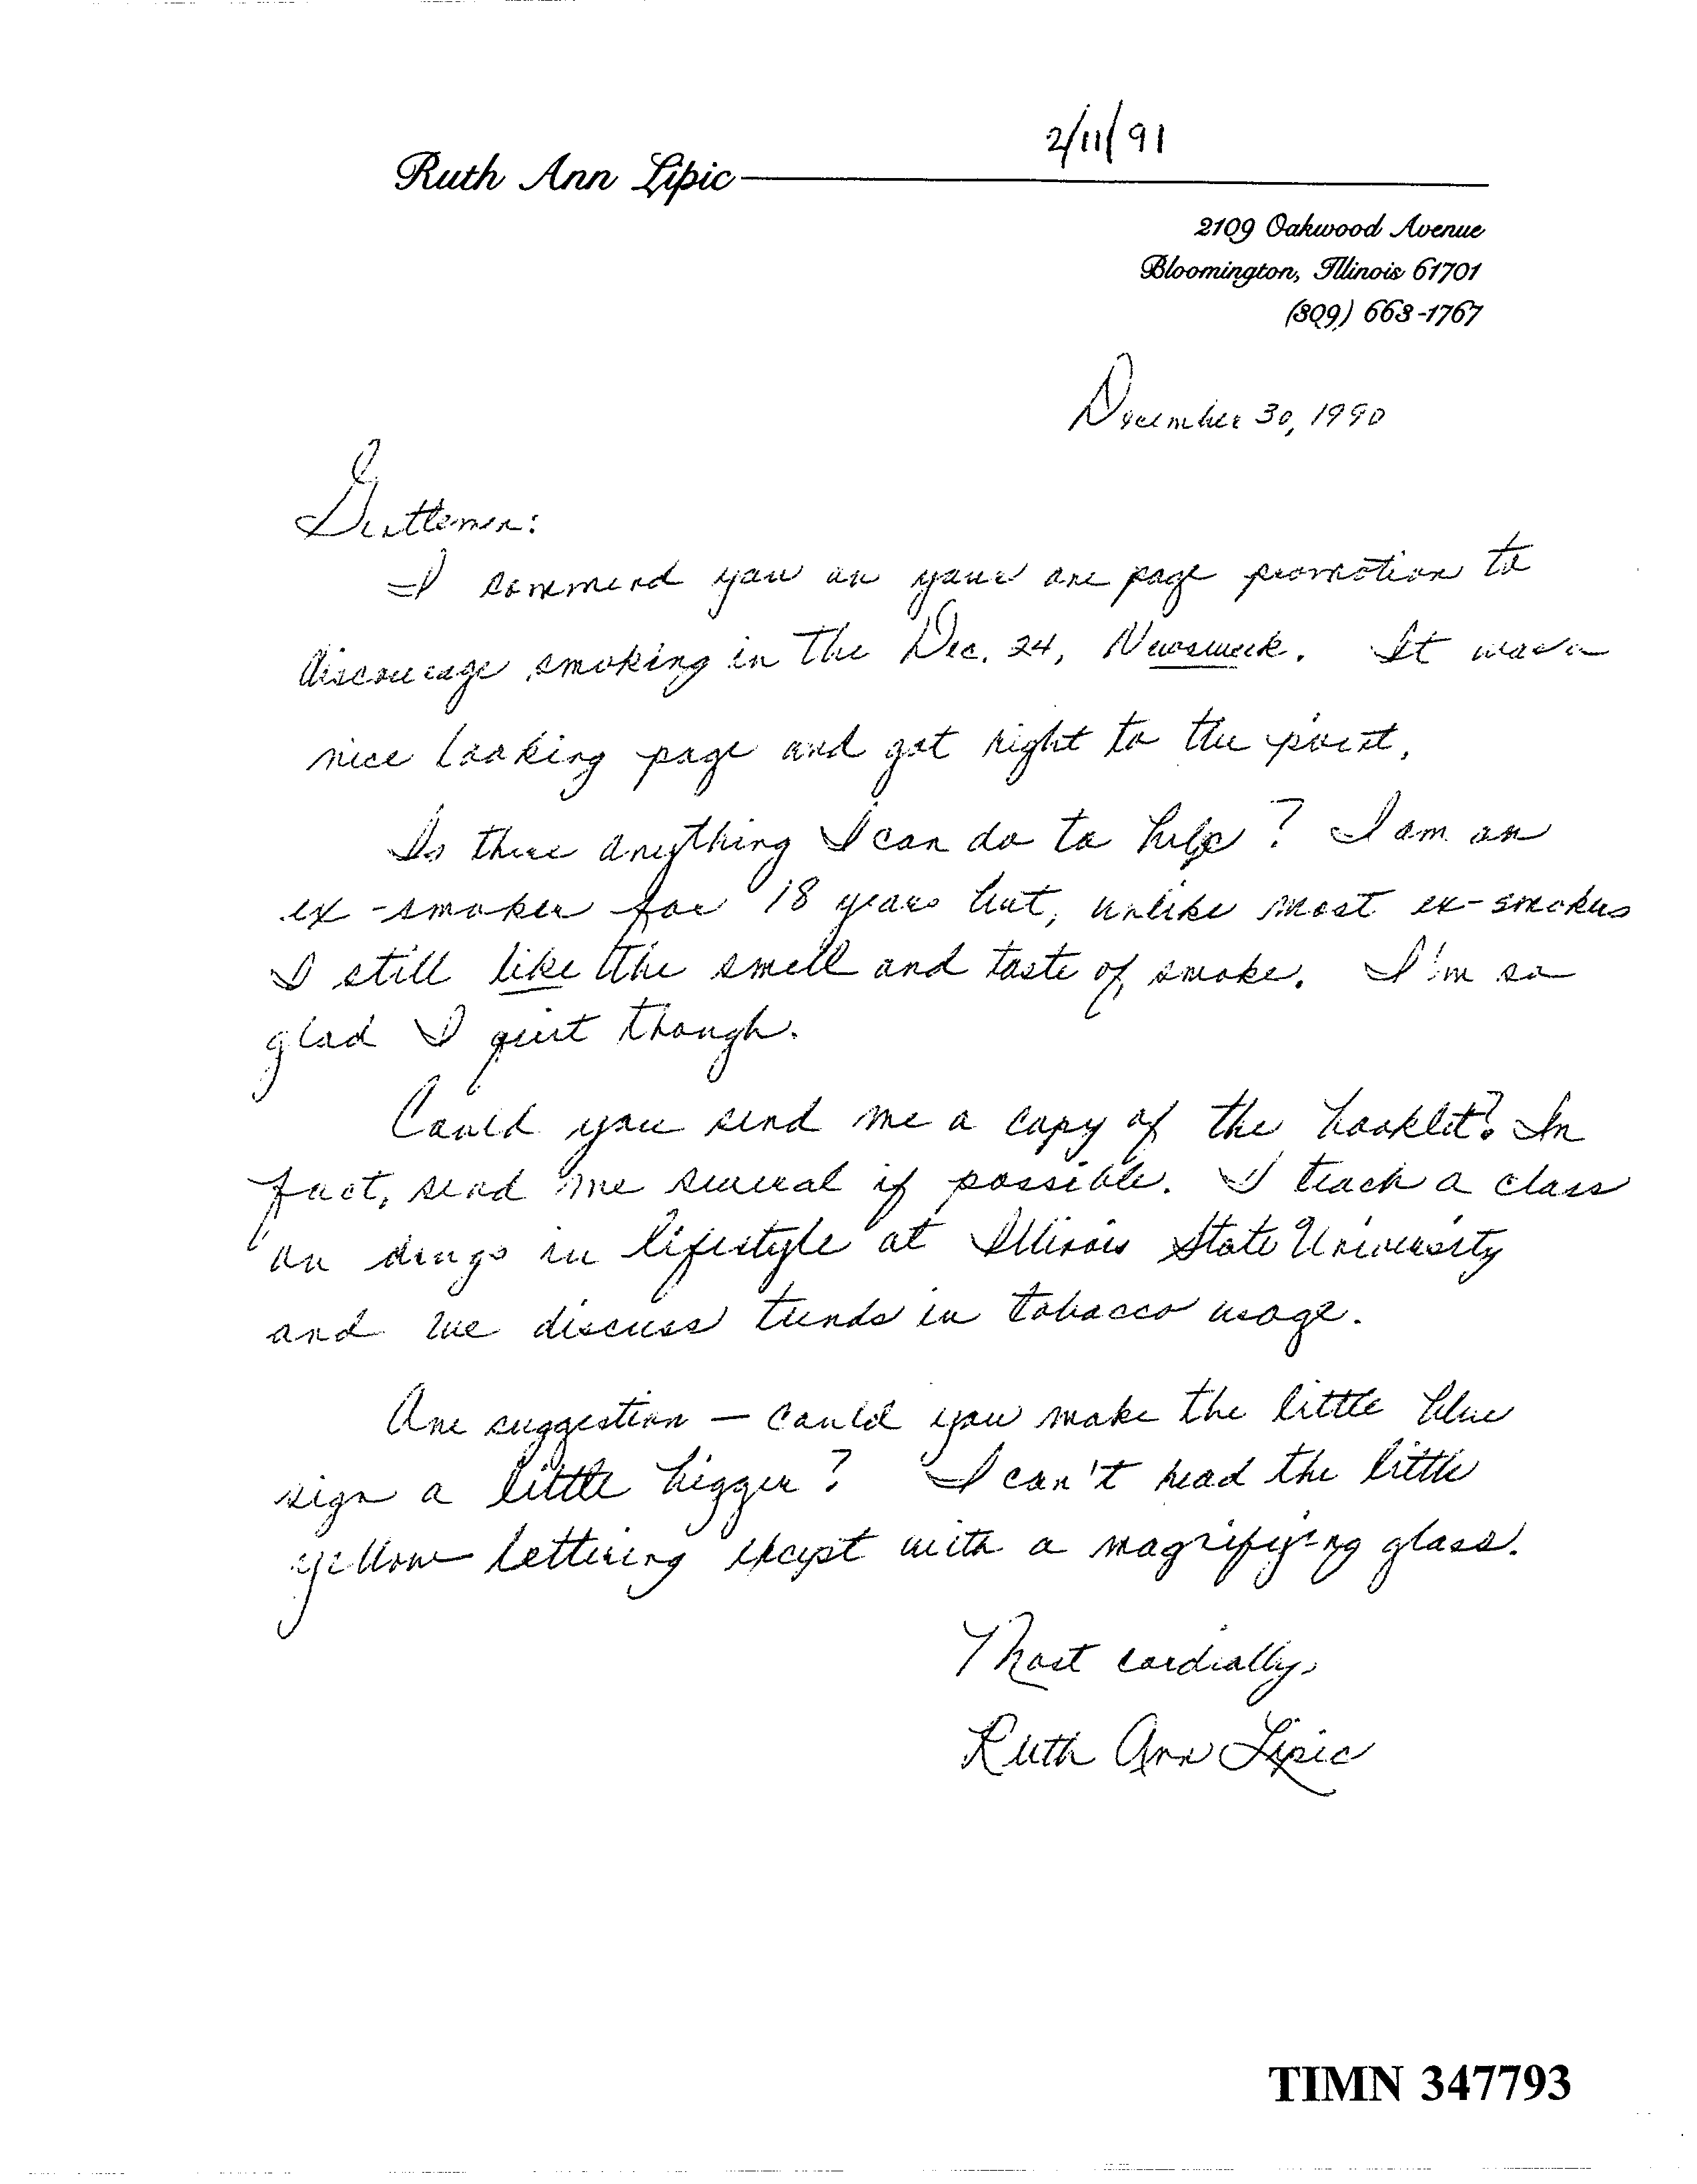 2/11/91
Ruth Ann Lipic
2109 Oakwood Avenue
Bloomington, Illinois 61701
(309) 663-1767
December 30, 1990
Gentlemen:
I commend you on your one page promotion to
discourage smoking in the Dec. 24, Newsweek. It was a
nice looking page and got right to the point.
Is there anything I can do to help? I am an
ex-smoker for 18 years but, unlike most ex-smokers
I still like the smell and taste of smoke. I'm so
glad I quit though.
Could you send me a copy of the booklet? In
fact, send me several if possible. I teach a class
on drugs in lifestyle at Illinois State University
and we discuss trends in tobacco usage.
One suggestion – could you make the little blue
sign a little bigger? I can't read the little
yellow lettering except with a magnifying glass.
Most cordially,
Ruth Ann Lipic
TIMN 347793